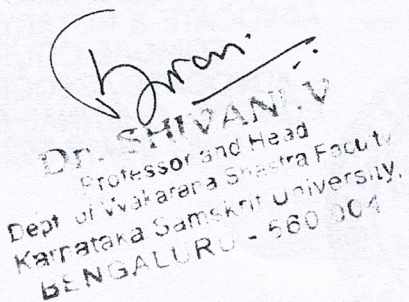 Dr. SHIVANI.V
Professor and Head
Dept of Vyakarana Shastra Faculty
Karnataka Samskrit University,
BENGALURU - 560 001